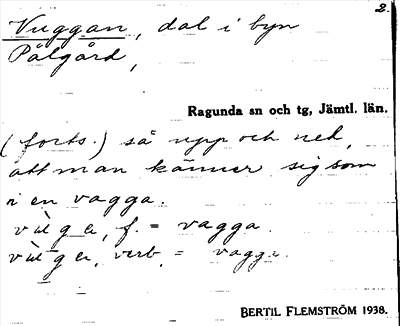 2.
Vuggan, dal i byn
Pålgård,
Ragunda sn och tg, Jämtl. län.
(forts.) så upp och ned,
att man känner sig som
i en vagga.
f. = vagga.
verb = vagga.
BERTIL FLEMSTRÖM 1938.